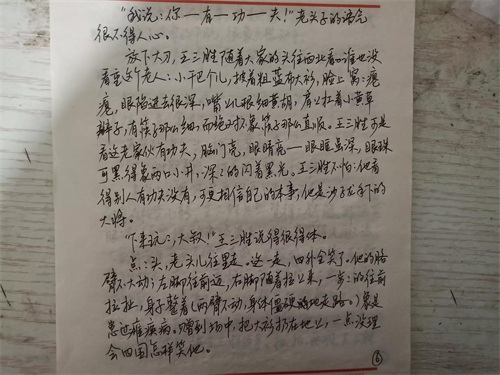 "我说:你—有—功—夫!"老头子的语气
很不得人心。
放下大刀,王三胜随着大家的头往西北看。谁也没
看重这个老人:小干巴个儿,披着粗蓝布大衫,脸上窝窝
瘪瘪,眼陷进去很深,嘴上几根细黄胡,肩上扛着小黄草
辫子,有筷子那么细,而绝对不象筷子那么直顺。王三胜可是
看这老家伙有功夫,脑门亮,眼睛亮—眼眶虽深,眼珠
可黑得象两口小井,深深的闪着黑光。王三胜不怕:他看
得别人有功夫没有,可更相信自己的本事,他是沙子龙手下的
大将。
"下来玩玩,大叔!"王三胜说得很得体。
点点头,老头儿往里走。这一走,四外全笑了。他的胳
臂不大动;左脚往前迈,右脚随着拉上来,一步步的往前
拉扯,身子整着(两臂不动,身体僵硬的地走路。)象是
患过瘫痪病。蹭到场中,把大衫扔在地上,一点没理
会四围怎样笑他。
⑥